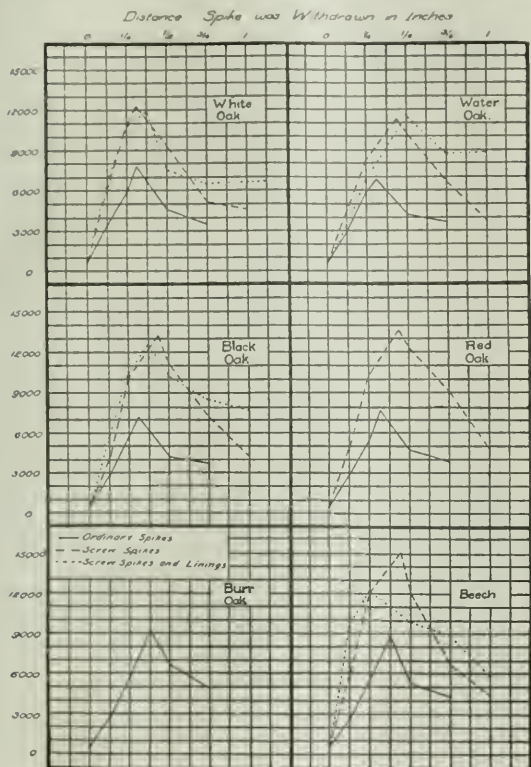 Distance Spike was Withdrawn in Inches
0 1/4 1/2 3/4 1 0 1/4 1/2 3/4 1
15000
12000
9000
6000
3000
0
White
Oak
Water
Oak.
15000
12000
9000
6000
3000
0
Black
Oak
Red
Oak
Ordinary Spikes
Screw Spikes
Screw Spikes and Linings
15000
12000
9000
6000
3000
0
Burr
Oak
Beech